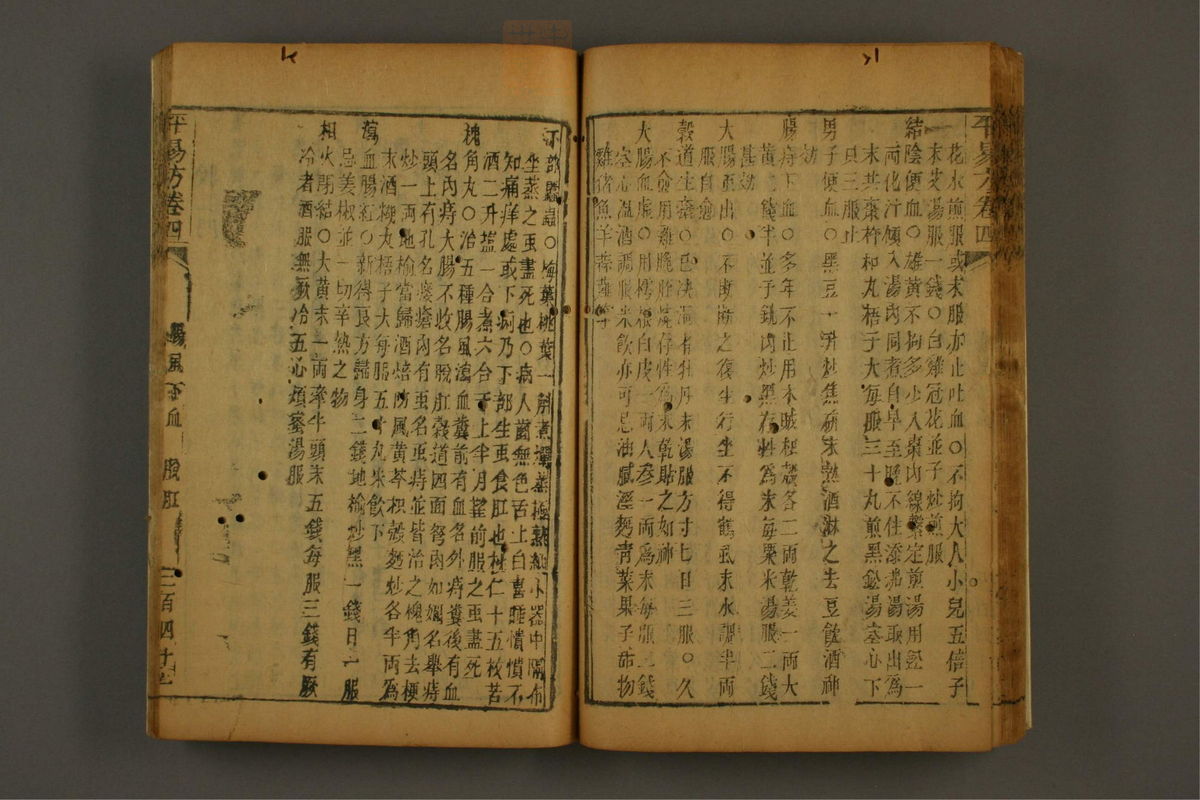 平易方卷四
花水煎服或末服亦止吐血〇不拘大人小兒五倍子
末艾湯服一錢〇白雞冠花並子炒煎服
結陰便血〇雄黃不拘多少入棗內線繫定煎湯用鉛一
兩化汁傾入湯內同煮自早至晚不住添沸湯取出為
末共棗杵和丸梧子大每服三十丸煎黑鉛湯空心下
只三服止
男子便血〇黑豆一升炒焦研末熱酒淋之去豆飲酒神
効
腸痔下血〇多年不止用木賊枳殼各二兩乾姜一兩大
黃二錢半並于銚內炒黑存性為末每粟米湯服二錢
甚効
大腸虫出〇不斷斷之復生行坐不得鶴虱末水調半兩
服自愈
穀道生瘡〇已決濃者牡丹末湯服方寸匕日三服〇久
不愈用雞膍胵燒存性為末乾貼之如神
大腸血虛〇用樗根白皮一兩人參一兩為末每服二錢
空心溫酒調服米飲亦可忌油膩溼麪青菜果子甜物
雞猪魚羊蒜薤等
下部䘌蟲〇梅葉桃葉一斛煮濃蒸極熱納小器中隔布
坐蒸之虫盡死也〇病人齒無色舌上白喜睡憒憒不
知痛痒處或下痢乃下部生虫食肛也桃仁十五枚苦
酒二升塩一合煮六合于上半月望前服之虫盡死
槐角丸〇治五種腸風瀉血糞前有血名外痔糞後有血
名內痔大腸不收名脫肛穀道四面弩肉如嬭名舉痔
頭上有孔名瘻瘡內有虫名虫痔並皆治之槐角去梗
炒一兩地榆當歸酒焙防風黃芩枳殼麪炒各半兩為
末酒糊丸梧子大每服五十丸米飲下
瀉血腸紅〇新得良方歸身二錢地榆炒黑一錢日二服
忌姜椒並一切辛熱之物
相火閉結〇大黃末一兩牽牛頭末五錢每服三錢有厥
冷者酒服無厥冷五心煩蜜湯服
平易方卷四
腸風下血 脫肛
二百四十七